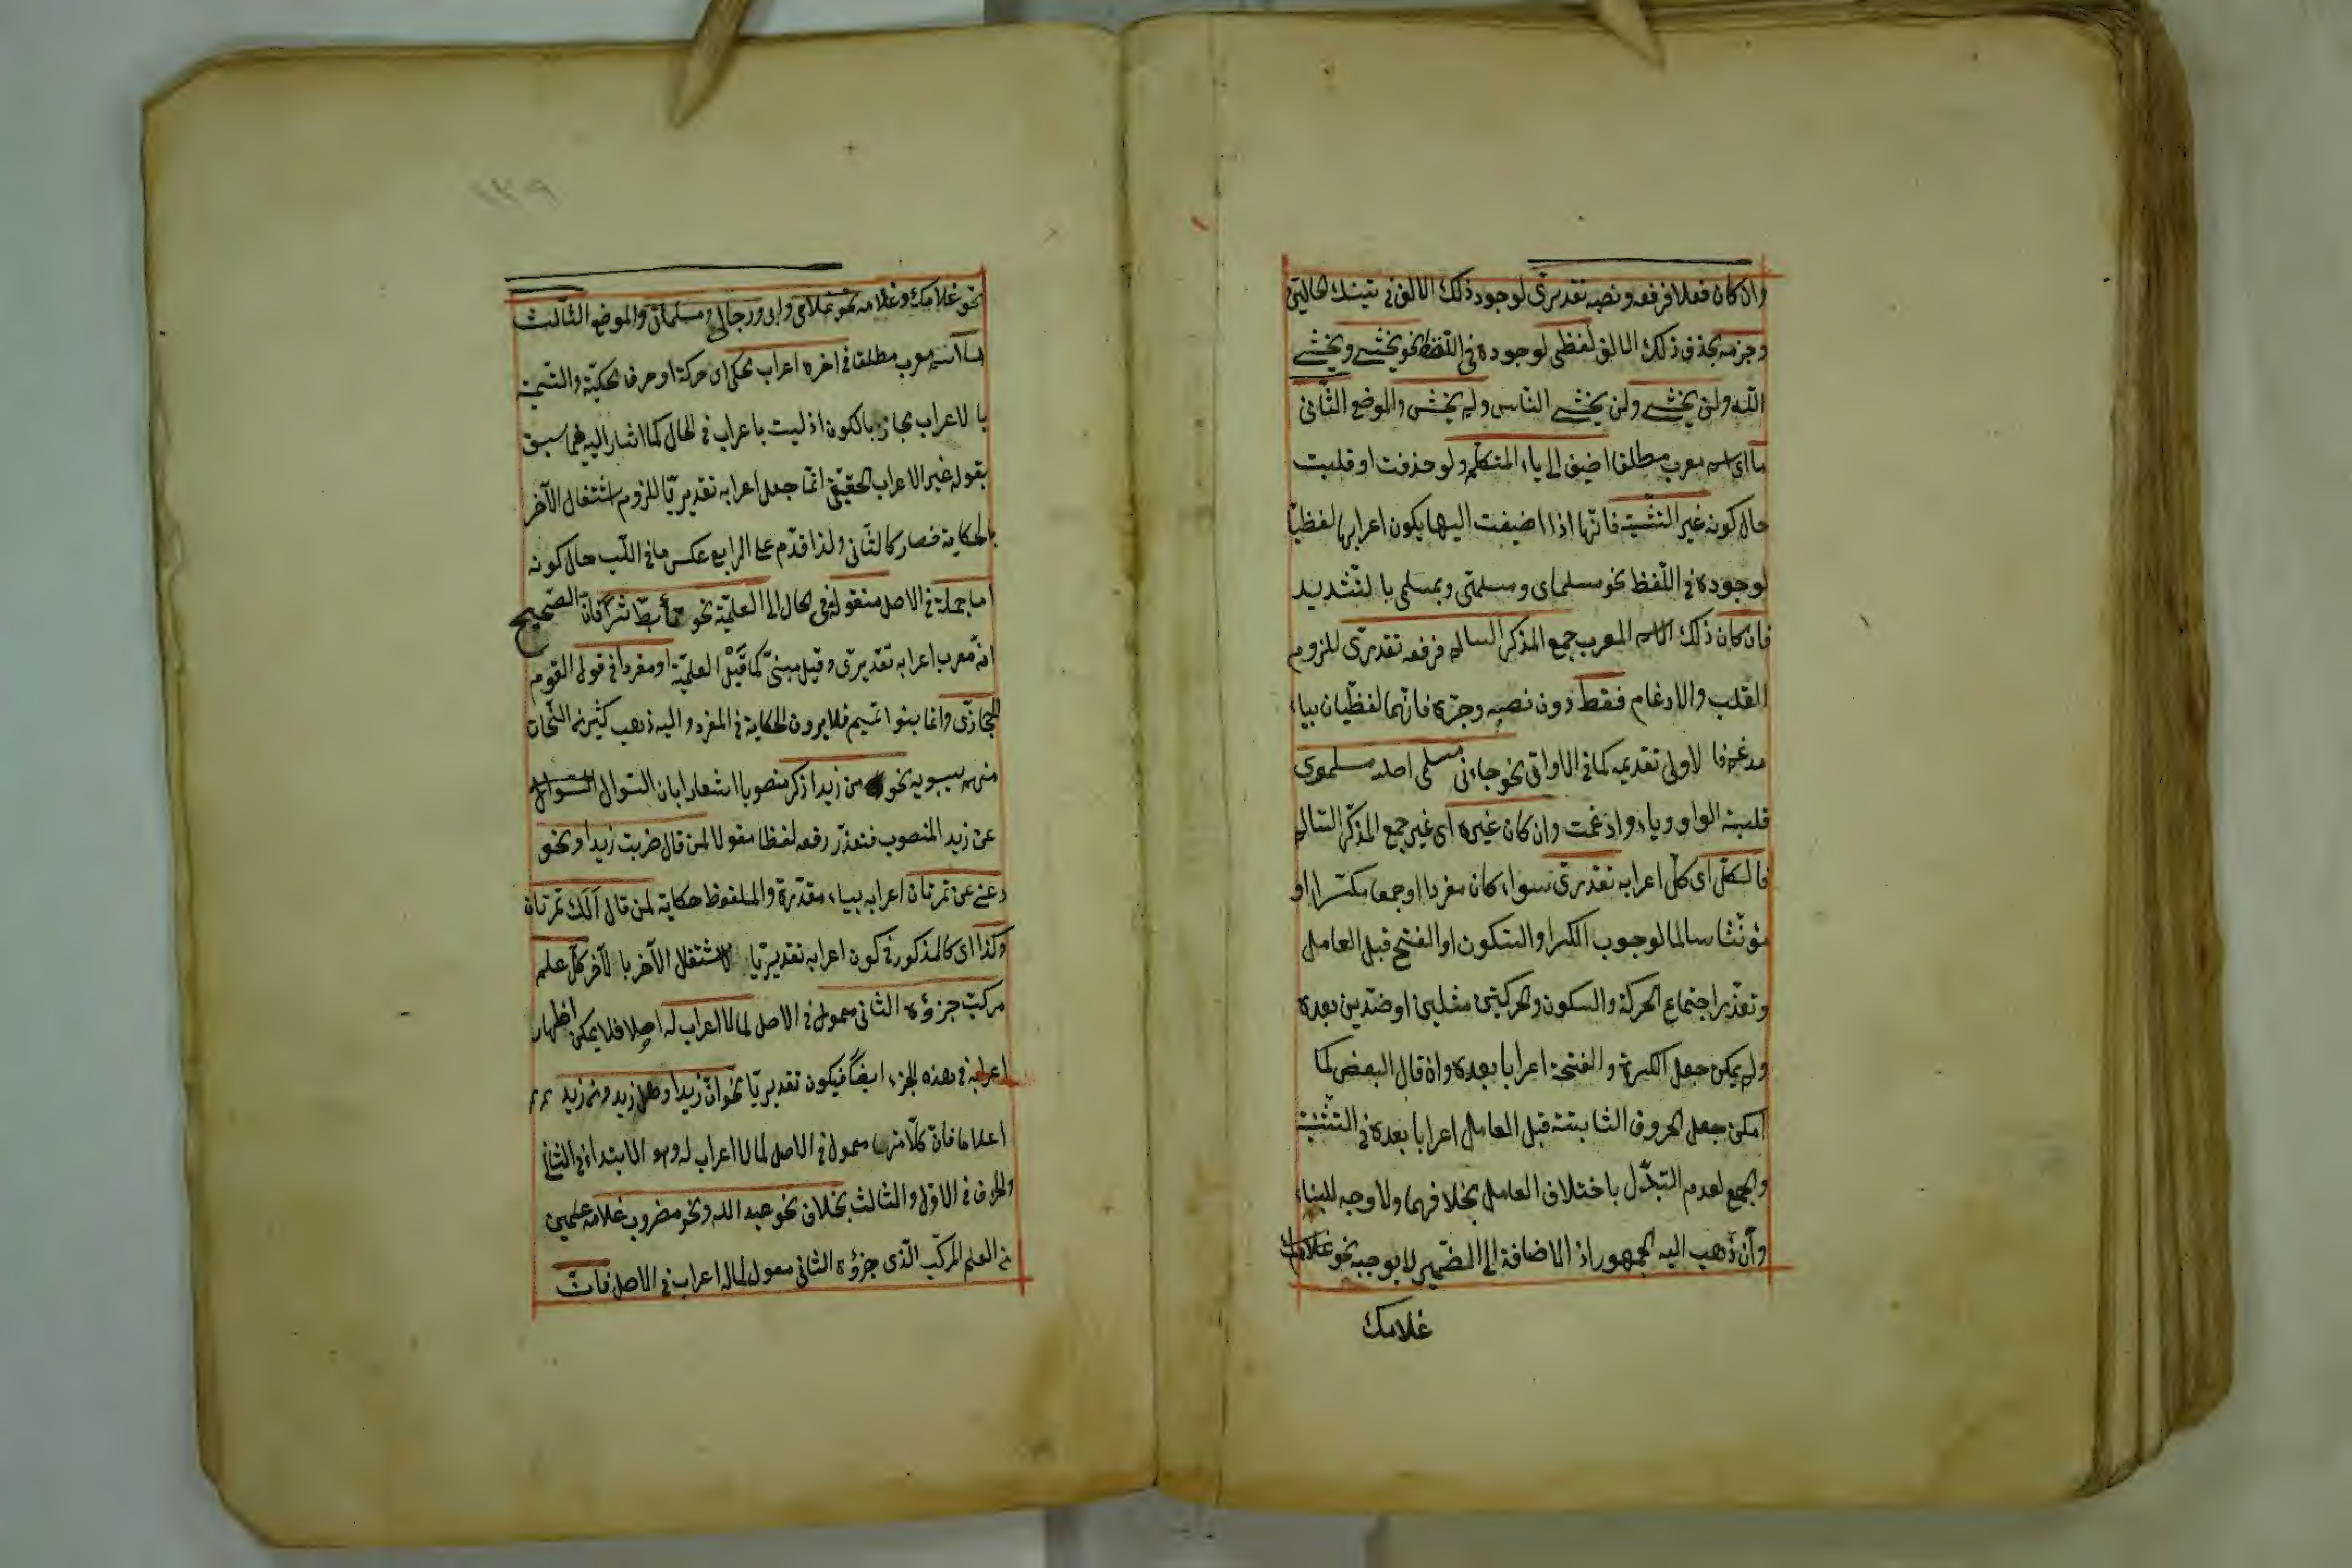 وان كان فعلا فرفعه ونصبه تقديرى لوجود ذلك الالف فى تينك الحالتين
وجزمه بحذف ذلك الالف لفظى لوجوده فى اللفظ نحو يخشى ويخشى
الله ولن يخشى ولن يخشى الناس ولم يخش والموضع الثانى
ما اى اسم معرب مطلقا اضيف الى ياء المتكلم ولو حذفت او قلبت
حال كونه غير التثنية فانها اذا اضيفت اليها يكون اعرابها لفظيا
لوجوده فى اللفظ نحو مسلماى ومسلمتى وبمسلمى بالتشديد
فان كان ذلك الاسم المعرب جمع المذكر السالم فرفعه تقديرى للزوم
القلب والادغام فقط دون نصبه وجره فانهما لفظيان بياء
مدغم فالاولى تقديمه كما فى الاوانى نحو جاءنى مسلمى اصله مسلموى
قلبت الواو وياء وادغمت وان كان غيره اى غير جمع المذكر السالم
فالكل اى كل اعرابه تقديرى سواء كان مفردا او جمعا مكسرا او
مؤنثا سالما لوجوب الكسر او السكون او الفتح قبل العامل
وتعذر اجتماع الحركة والسكون والحركتين مثلين او ضدين بعده
ولم يمكن جعل الكسرة والفتحة اعرابا بعده وان قال البعض كما
امكن جعل الحروف الثابتة قبل العامل اعرابا بعده فى التثنية
والجمع لعدم التبدل باختلاف العامل بخلافهما ولا وجه للبناء
وان ذهب اليه الجمهور اذ الاضافة الى الضمير لا يوجبه نحو غلامك
غلامك
١٣٩
نحو غلامك وغلامه نحو غلامى وابى ورجالى ومسلماتى والموضع الثالث
ما اسم معرب مطلقا فى اخره اعراب محكى اى حركة او حرف محكية والتسمية
بالاعراب مجاز بالكون اذ ليست باعراب فى الحال كما اشار اليه فيما سبق
بقوله غير الاعراب الحقيقى انما جعل اعرابه تقديريا للزوم اشتغال الآخر
بالحكاية فصار كالثانى ولذا قدم على الرابع عكس ما فى اللب حال كونه
اما جملة فى الاصل منقولة فى الحال الى العلمية نحو تأبط شرا فان الصحيح
انه معرب اعرابه تقديرى وقيل مبنى كما قبل العلمية او مفردا فى قول القوم
الحجازى واما بنوا تميم فلا يرون الحكاية فى المفرد واليه ذهب كثير من النحاة
منهم سيبويه نحو من زيدا ذكر منصوبا اشعارا بان السوال السوال
عن زيد المنصوب فتعذر رفعه لفظا مقولا لمن قال ضربت زيدا ونحو
دعنى عن تمرتان اعرابه بياء مقدرة والملفوظ حكاية لمن قال الك تمرتان
وكذا اى كالمذكور فى كون اعرابه تقديريا لاشتغال الآخر بالآخر كل علم
مركب جزؤه الثانى معمول فى الاصل لما لا اعراب له اصلا فلا يمكن اظهار
اعرابه فى هذه الجزء ايضا فيكون تقديريا نحو ان زيدا وهل زيد ومن زيد
اعلاما فان كلا منها معمول فى الاصل لما لا اعراب له وهو الابتداء فى الثانى
والحرف فى الاول والثالث بخلاف نحو عبد الله ونحو مضروب غلامه علمين
من العلم المركب الذى جزؤه الثانى معمول لما له اعراب فى الاصل فان